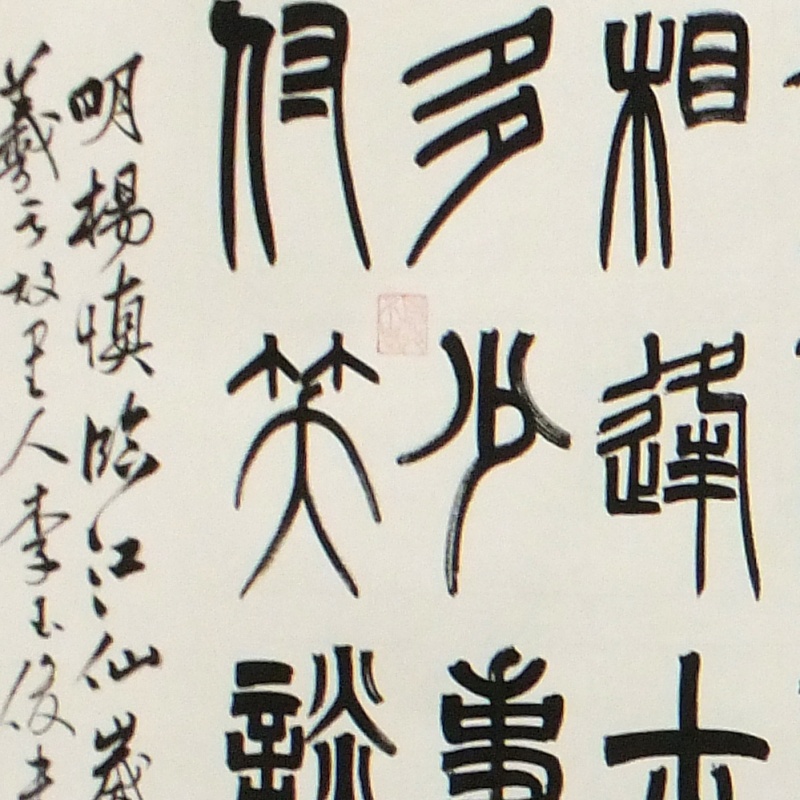 相逢古
多少事
付笑談
明楊慎臨江仙歲
羲之故里人李玉俊書